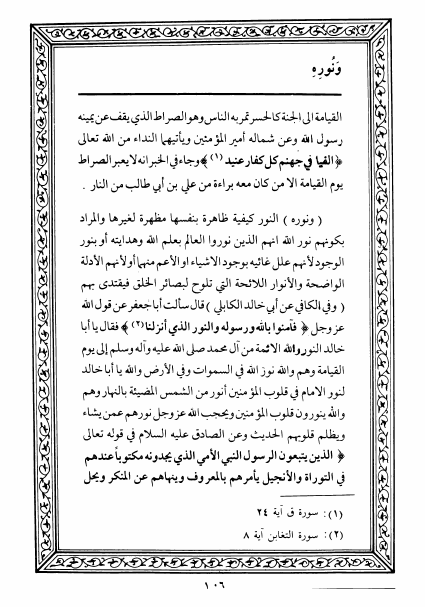 وَنُورِهِ
القيامة الى الجنة كالجسر تمر به الناس وهو الصراط الذي يقف عن يمينه
رسول الله وعن شماله أمير المؤمنين ويأتيهما النداء من الله تعالى
﴿ القيا في جهنم كل كفار عنيد (١) ﴾ وجاء في الخبر انه لا يعبر الصراط
يوم القيامة الا من كان معه براءة من علي بن أبي طالب من النار .
( ونوره ) النور كيفية ظاهرة بنفسها مظهرة لغيرها والمراد
بكونهم نور الله انهم الذين نوروا العالم بعلم الله وهدايته أو بنور
الوجود لأنهم علل غائيه بوجود الاشياء او الأعم منهما أو لأنهم الأدلة
الواضحة والأنوار اللائحة التي تلوح لبصائر الخلق فيقتدى بهم
( وفي الكافي عن أبي خالد الكابلي ) قال سألت أبا جعفر عن قول الله
عز وجل ﴿ فآمنوا بالله ورسوله والنور الذي أنزلنا (٢) ﴾ فقال يا أبا
خالد النور والله الائمة من آل محمد صلى الله عليه وآله وسلم إلى يوم
القيامة وهم والله نور الله في السموات وفي الأرض والله يا أبا خالد
لنور الامام في قلوب المؤمنين أنور من الشمس المضيئة بالنهار وهم
والله ينورون قلوب المؤمنين ويحجب الله عز وجل نورهم عمن يشاء
ويظلم قلوبهم الحديث وعن الصادق عليه السلام في قوله تعالى
﴿ الذين يتبعون الرسول النبي الأمي الذي يجدونه مكتوباً عندهم
في التوراة والأنجيل يأمرهم بالمعروف وينهاهم عن المنكر ويحل
(١): سورة ق آية ٢٤
(٢): سورة التغابن آية ٨
١٠٦